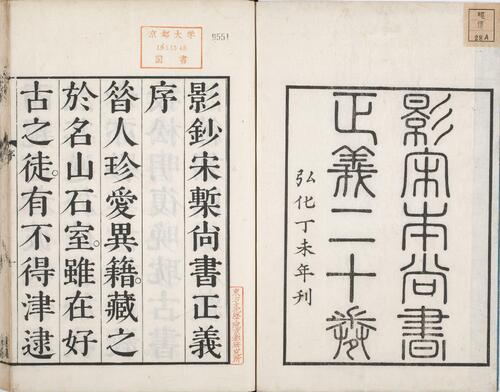 影宋本尚書
正義二十卷
弘化丁未年刊
影鈔宋槧尚書正義
序
昝人珍愛異籍。藏之
於名山石室。雖在好
古之徒。有不得津逮
京都大学
図書
9551